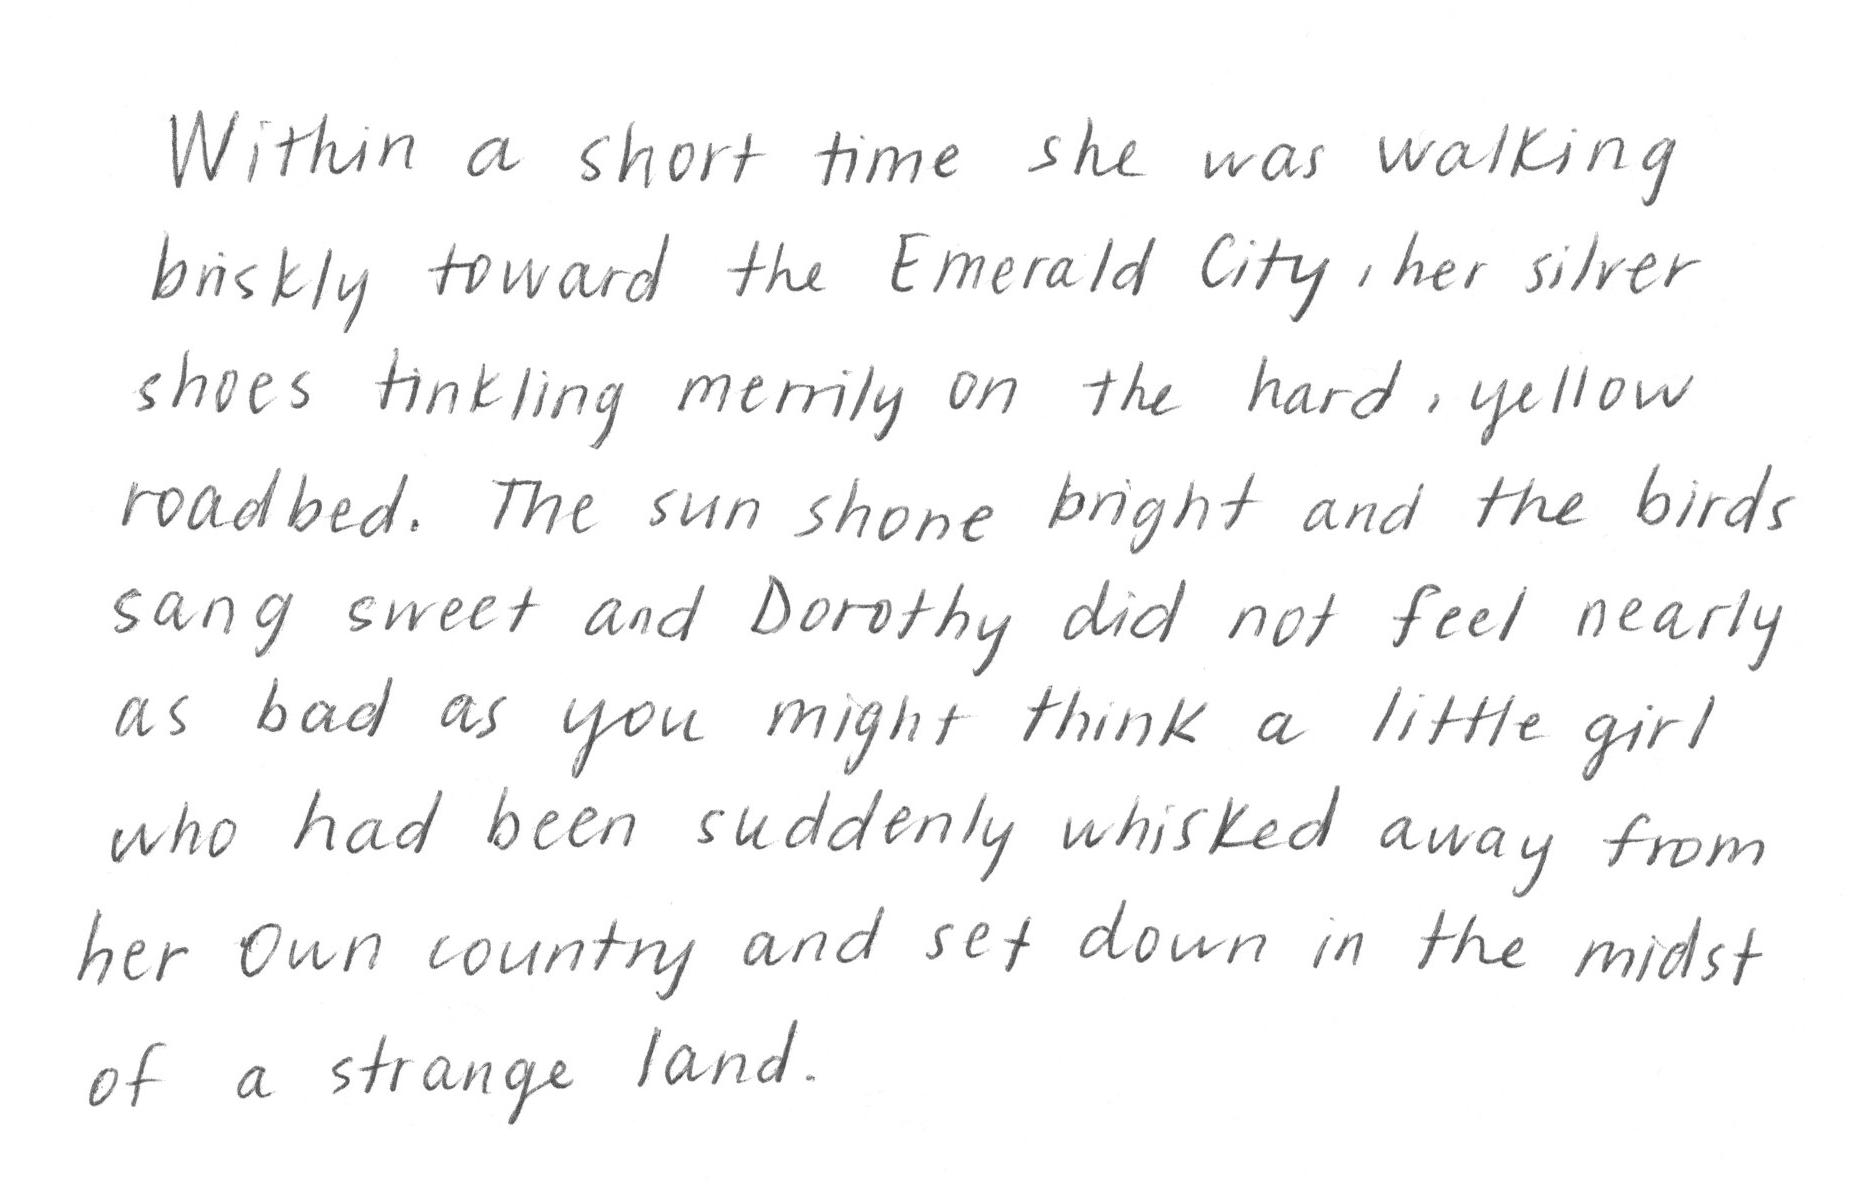 Within a short time she was walking
briskly toward the Emerald City, her silver
shoes tinkling merrily on the hard, yellow
roadbed. The sun shone bright and the birds
sang sweet and Dorothy did not feel nearly
as bad as you might think a little girl
who had been suddenly whisked away from
her own country and set down in the midst
of a strange land.